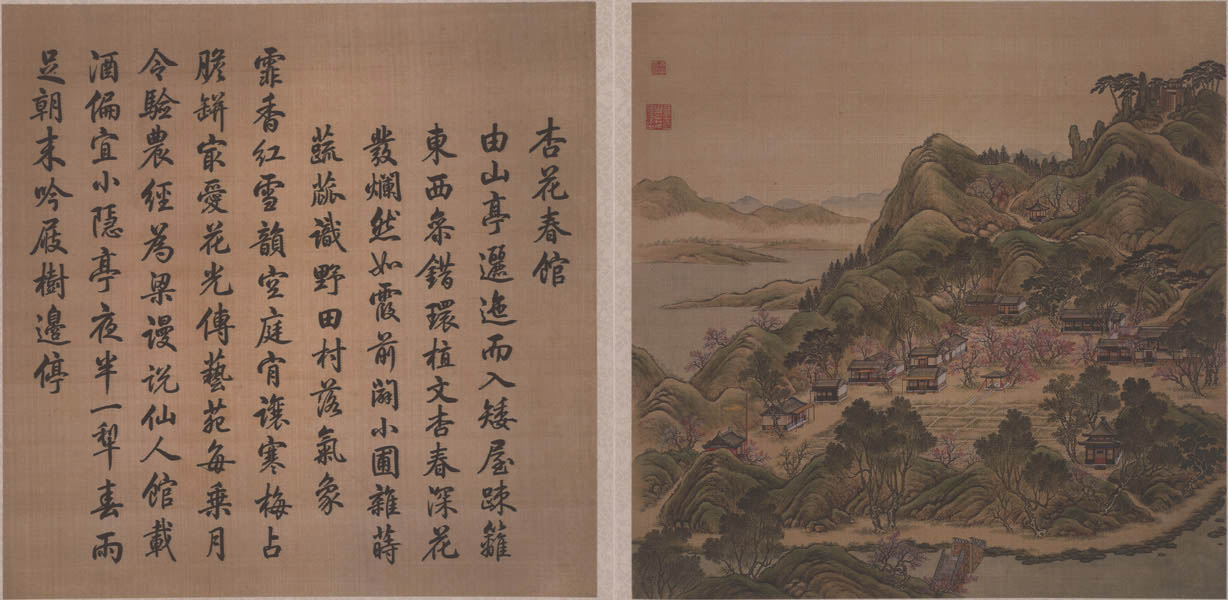 杏花春館
由山亭邐迤而入矮屋疎籬
東西叅錯環植文杏春深花
發爛然如霞前闢小圃雜蒔
蔬蓏識野田村落氣象
霏香紅雪韻空庭肯讓寒梅占
膽缾㝡愛花光傳藝苑每乗月
令驗農經為梁謾說仙人館載
酒偏宜小隱亭夜半一犂春雨
足朝来吟屐樹邊停